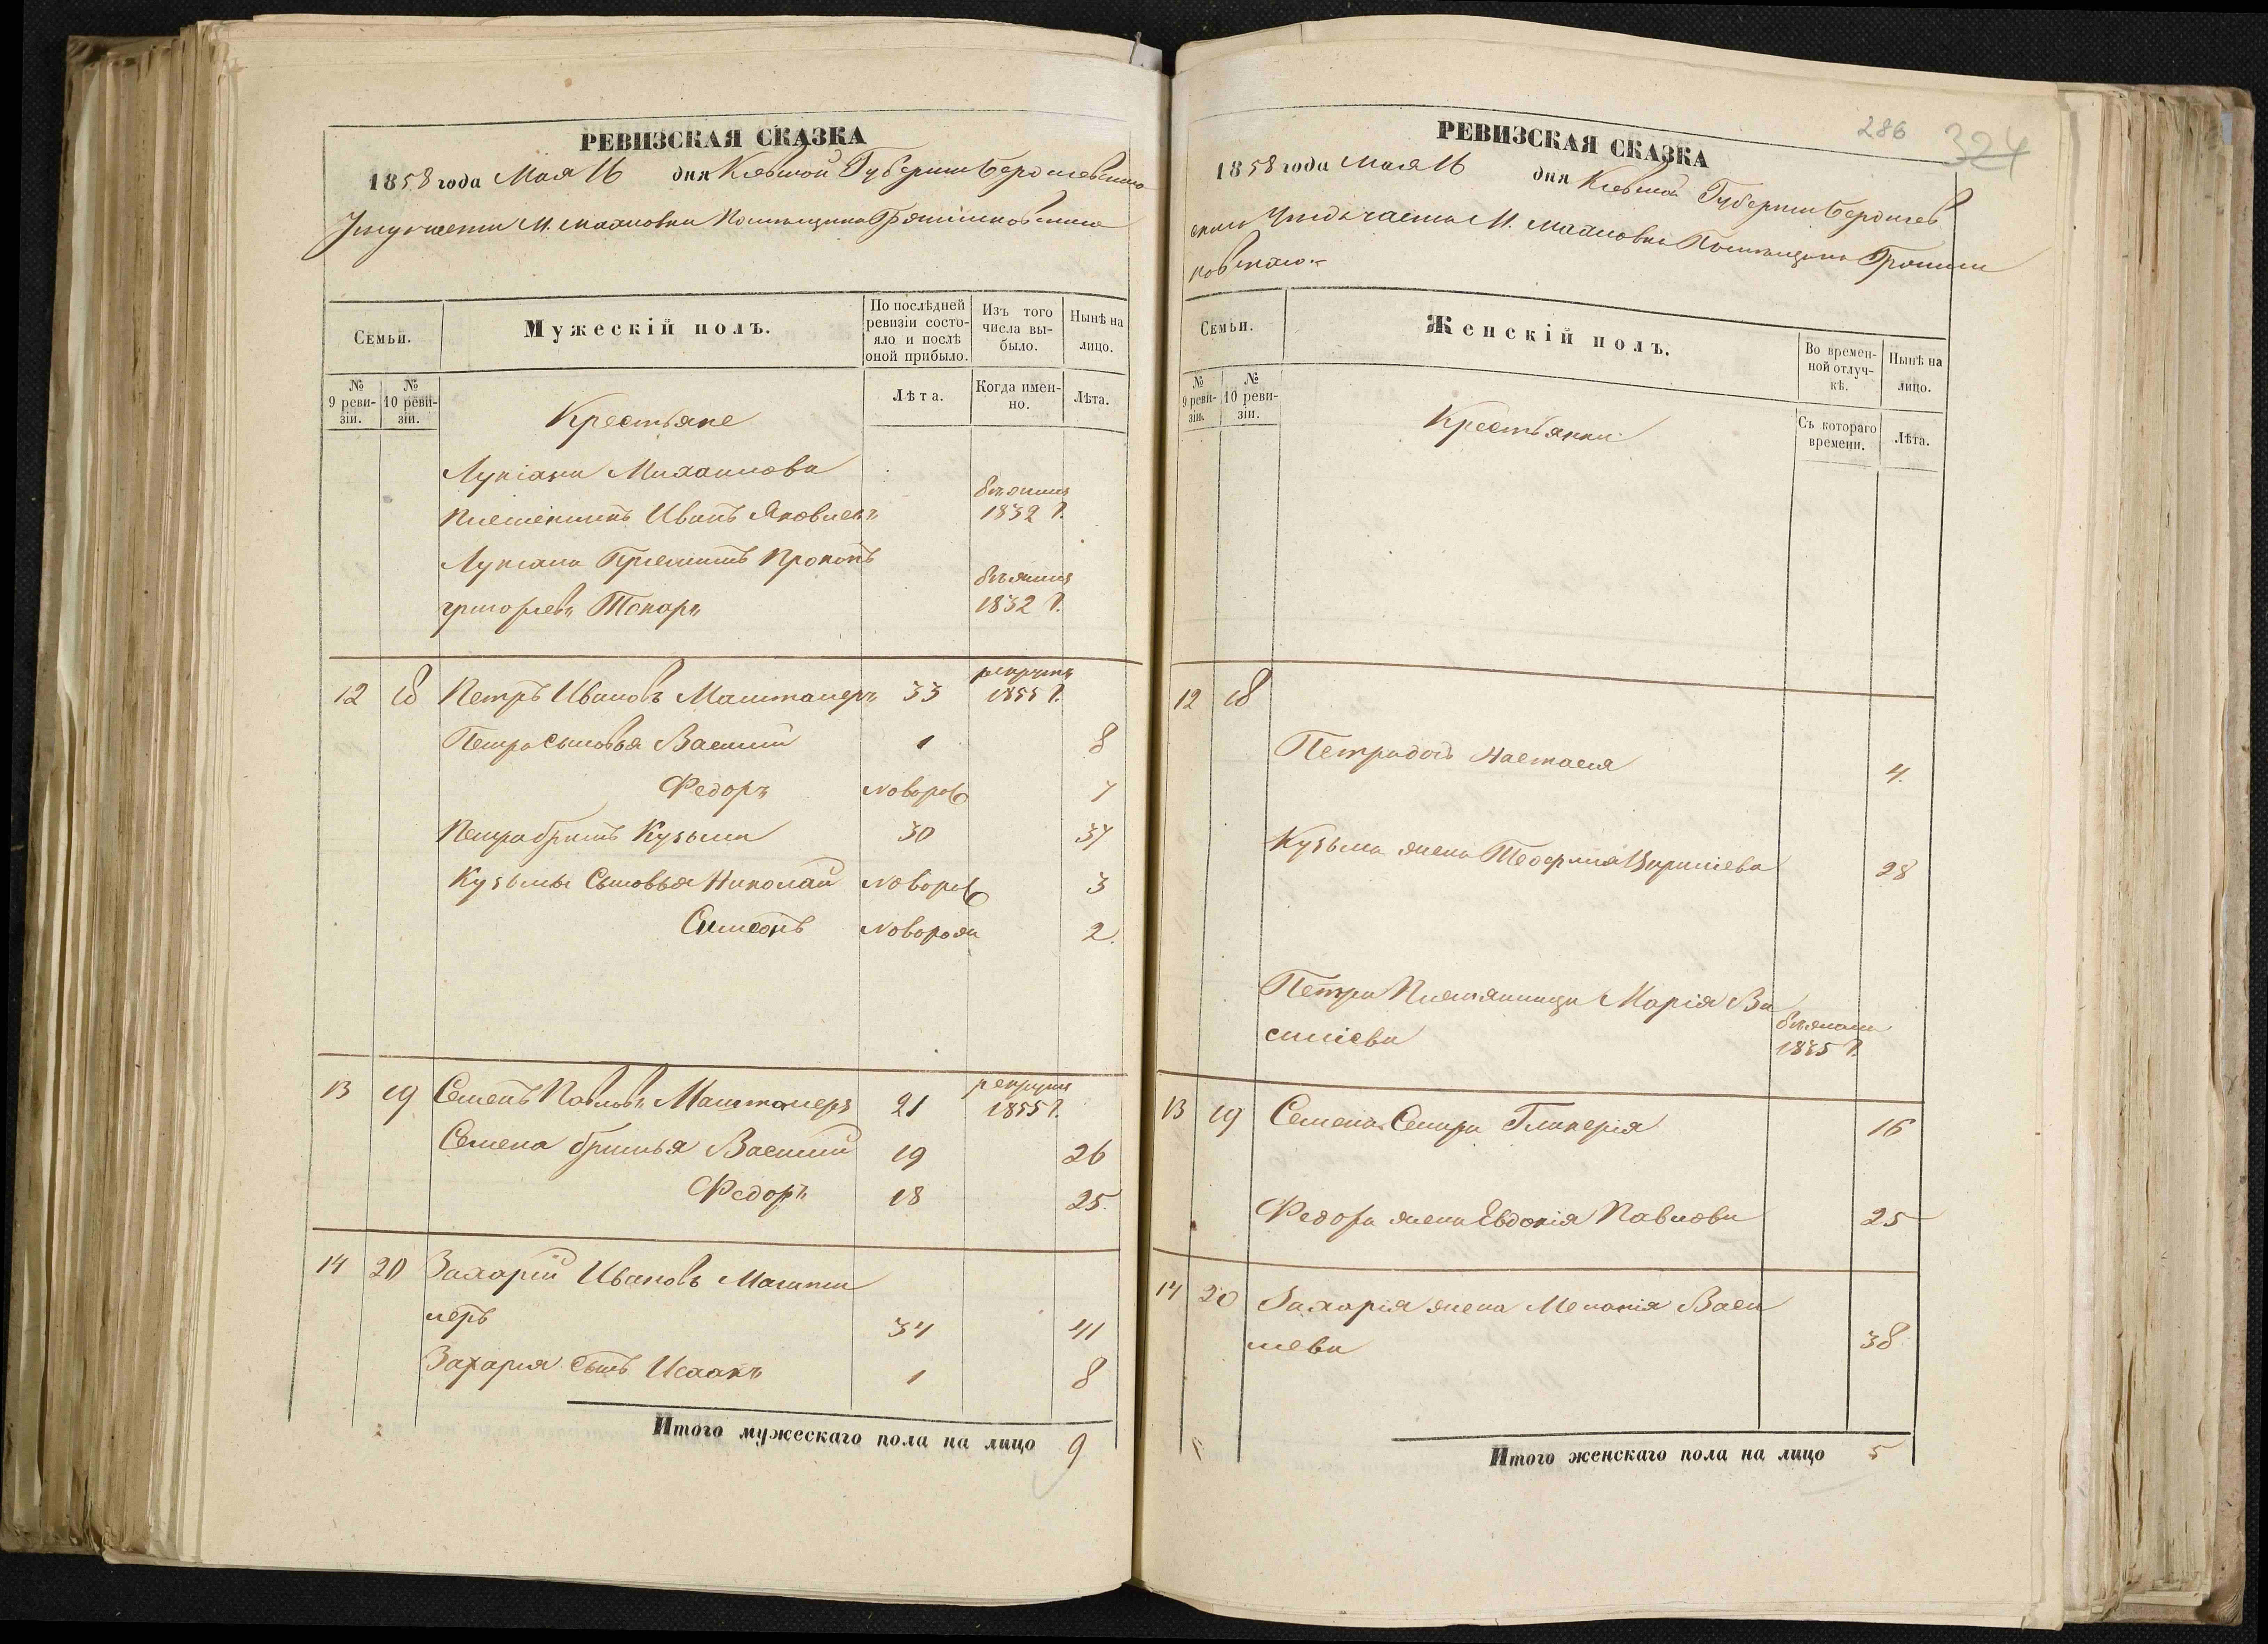 РЕВИЗСКАЯ СКАЗКА
1858 года Мая 16 дня Кіевской Губерніи Бердичевскаго
М. Махновки Помѣщика
Семьи.
Мужескій полъ.
По послѣдней ревизіи состояло и послѣ оной прибыло.
Изъ того числа выбыло.
Нынѣ на лицо.
№ 9 ревизіи.
№ 10 ревизіи.
Крестьяне
Лѣта.
Когда именно.
Лѣта.
Лукіана Михайлова
Племенникъ Иванъ Яковлевъ бѣжалъ 1832 г.
Лукіана Прокопъ
Григорьевъ Токарь бѣжалъ 1832 г.
12 18 Петръ Ивановъ Машталеръ 33 рекрутъ 1855 г.
Петра сыновья Василий 1 8
Федоръ новорож 7
Петра братъ Кузьма 30 37
Кузьмы Сыновья Николай новорож 3
Симеонъ новорож 2.
13 19 Семенъ Павловъ Машталеръ 21 рекрутъ 1855 г.
Семена братья Василий 19 26
Федоръ 18 25.
14 20 Захарій Ивановъ Машта
леръ 34 41
Захарія сынъ Исаакъ 1 8
Итого мужескаго пола на лицо 9
286 324
РЕВИЗСКАЯ СКАЗКА
1858 года Мая 16 дня Кіевской Губерніи Бердичев
скаго Уѣзда части М. Махновки Помѣщика
ковскаго
Семьи.
Женскій полъ.
Во временной отлучкѣ.
Нынѣ на лицо.
№ 9 ревизіи.
№ 10 ревизіи.
Крестьянки
Съ котораго времени.
Лѣта.
12 18
Петра дочь Настасія 4.
Кузьма жена 28
Петра Племянница Марія Ва
силіева бѣжала 1835 г.
13 19 Семена Сестра Гликерія 16
Федора жена Евдокія Павлова 25
14 20 Захарія жена Меланія Васи
лева 38
Итого женскаго пола на лицо 5